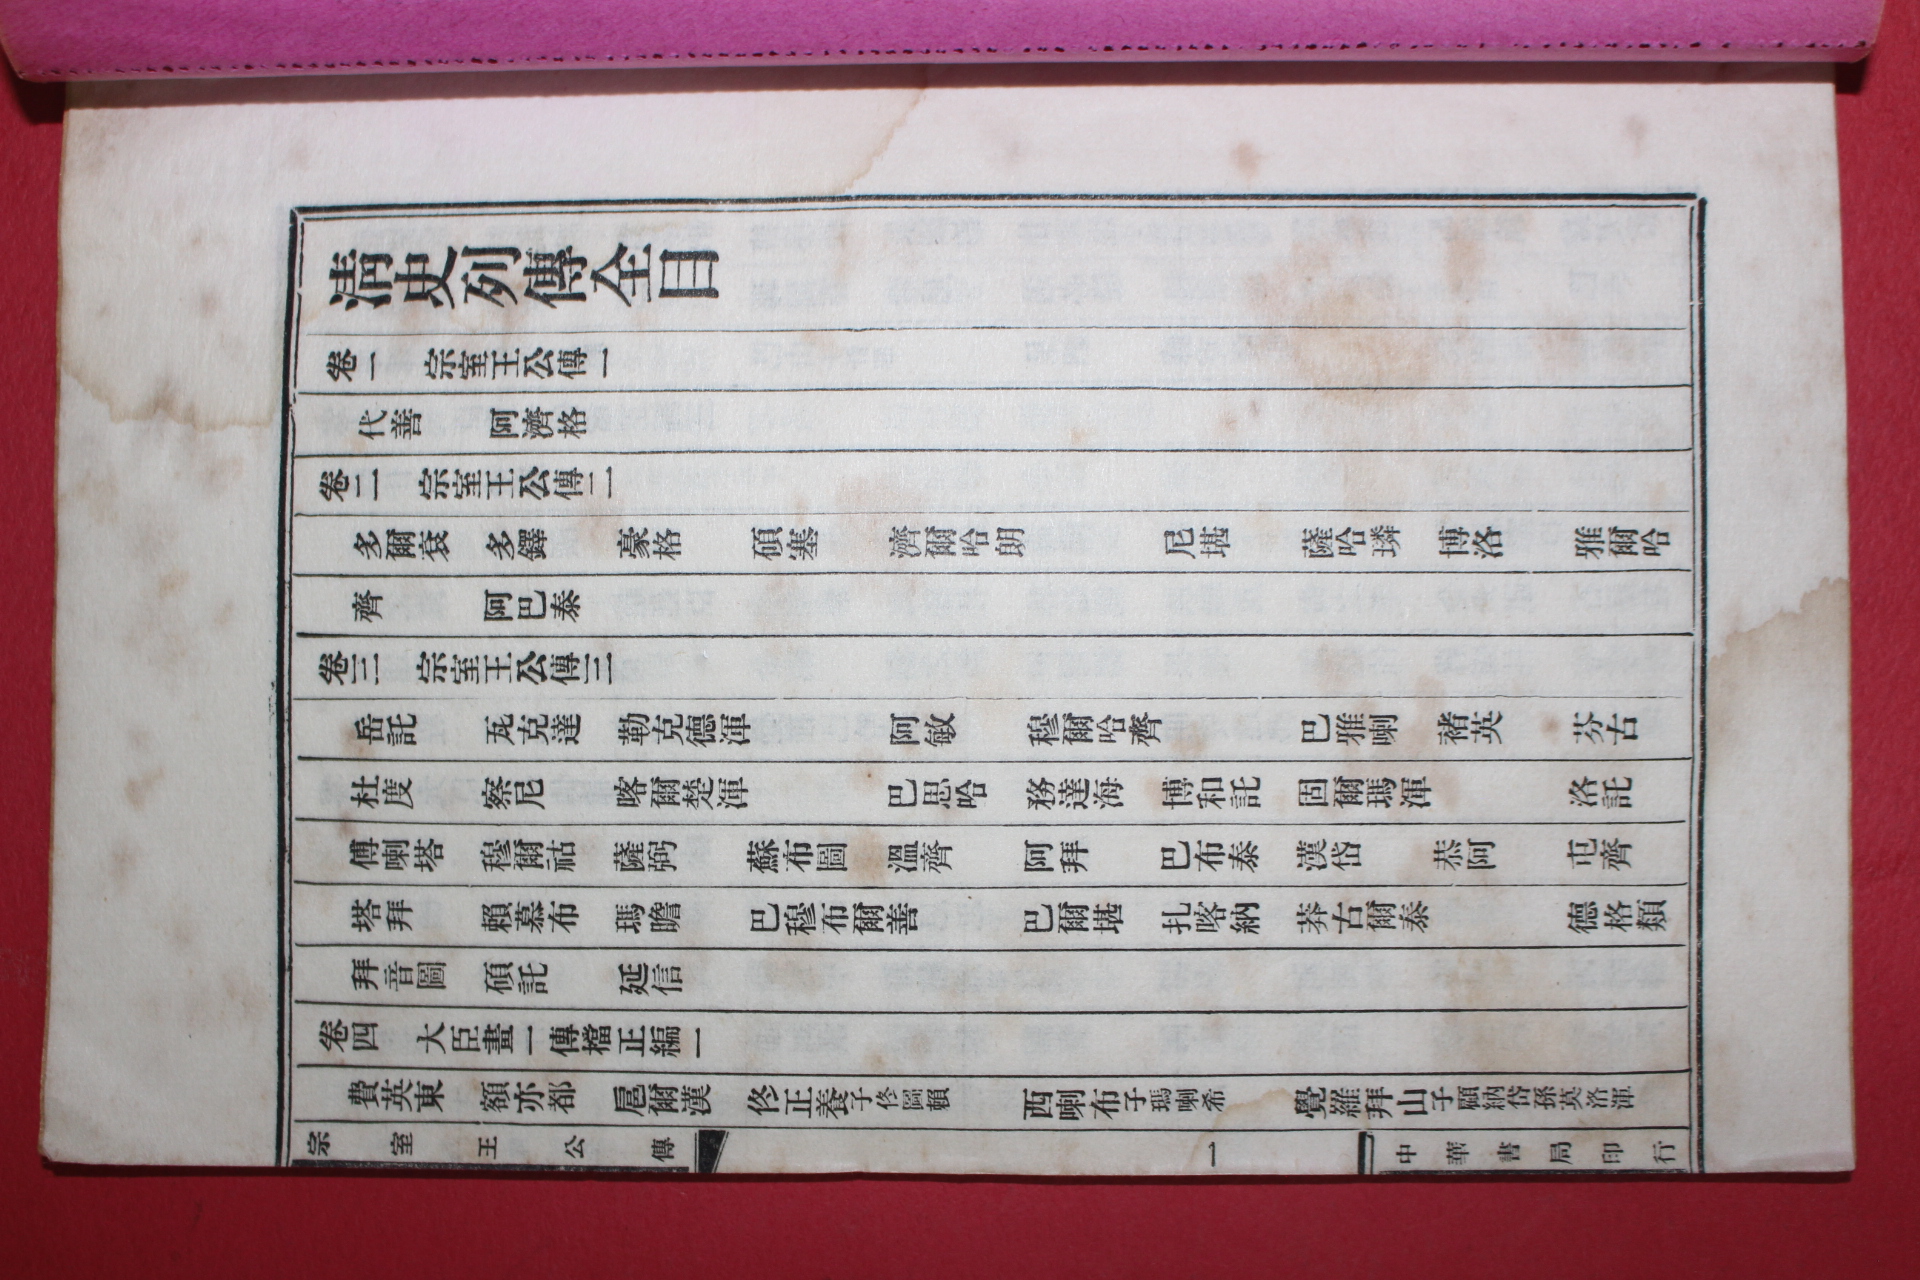 清史列傳全目
卷一　宗室王公傳一
代善　阿濟格
卷二　宗室王公傳二
多爾袞　多鐸　豪格　碩塞　濟爾哈朗　尼堪　薩哈璘　博洛　雅爾哈
齊　阿巴泰
卷三　宗室王公傳三
岳託　瓦克達　勒克德渾　阿敏　穆爾哈齊　巴雅喇　褚英　芬古
杜度　察尼　喀爾楚渾　巴思哈　務達海　博和託　固爾瑪渾　洛託
傅喇塔　穆爾祜　薩弼　蘇布圖　溫齊　阿拜　巴布泰　漢岱　恭阿　屯齊
塔拜　賴慕布　瑪瞻　巴穆布爾善　巴爾堪　扎喀納　莽古爾泰　德格類
拜音圖　碩託　延信
卷四　大臣畫一傳檔正編一
費英東　額亦都　扈爾漢　佟正養子佟圖賴　西喇布子瑪喇希　覺羅拜山子顧納岱孫莫洛渾
宗室王公傳　一　中華書局印行